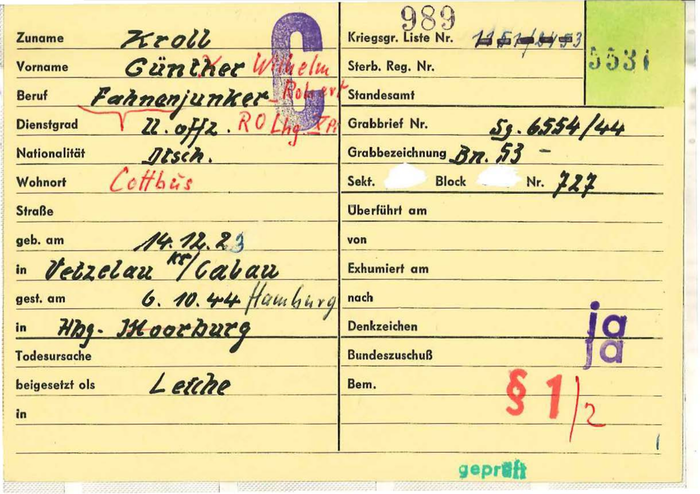 Zuname Kroll
Vorname Günther Wilhelm
Beruf Fahnenjunker Robert
Dienstgrad U.offz. R O Lhg
Nationalität Dtsch.
Wohnort Cottbus
Straße
geb. am 14.12.23
in Vetzelau Kr/Calau
gest. am 6.10.44 Hamburg
in Hbg-Moorburg
Todesursache
beigesetzt als Leiche
in
C
989
Kriegsgr. Liste Nr.
Sterb. Reg. Nr.
Standesamt
5531
Grabbrief Nr. Sg. 6554/44
Grabbezeichnung Bn. 53 -
Sekt. Block Nr. 727
Überführt am
von
Exhumiert am
nach
Denkzeichen ja
Bundeszuschuß ja
Bem. § 1/2
geprüft